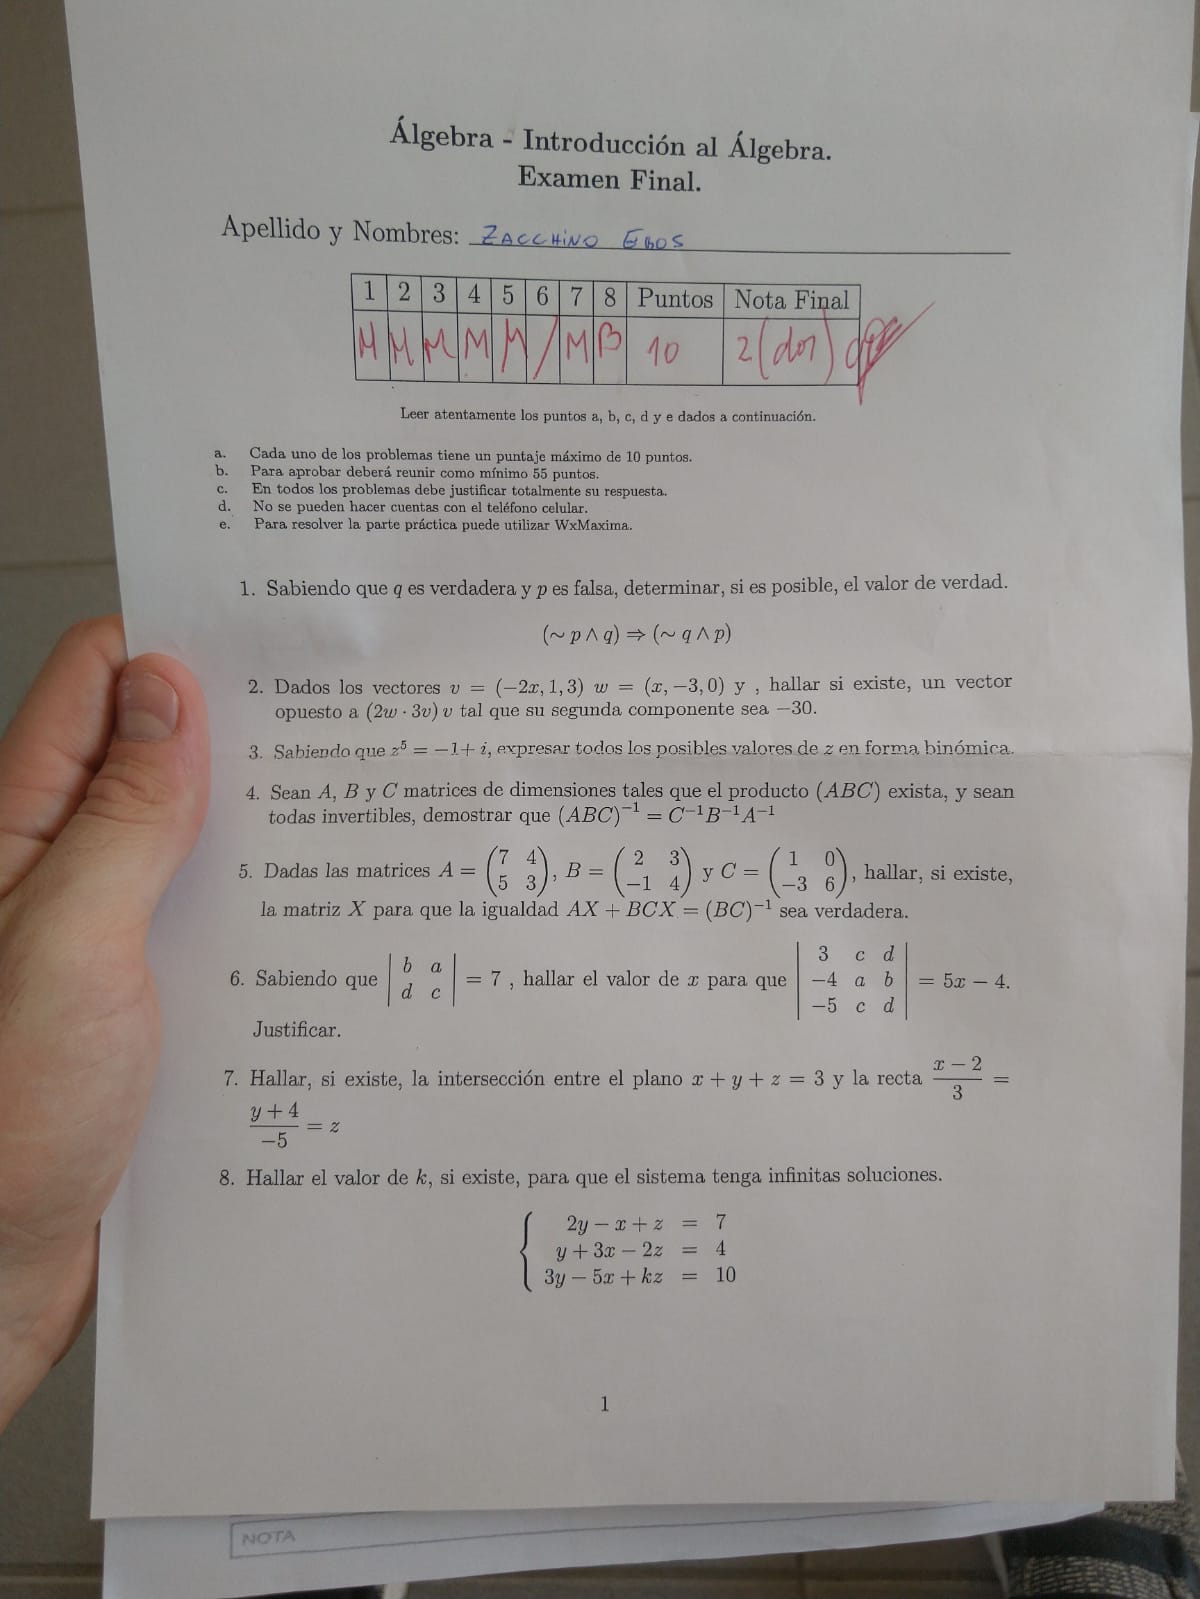 Álgebra - Introducción al Álgebra.
Examen Final.
Apellido y Nombres: ZACCHINO
1 2 3 4 5 6 7 8 Puntos Nota Final
M M M M M / M B 10 2(dos)
Leer atentamente los puntos a, b, c, d y e dados a continuación.
a. Cada uno de los problemas tiene un puntaje máximo de 10 puntos.
b. Para aprobar deberá reunir como mínimo 55 puntos.
c. En todos los problemas debe justificar totalmente su respuesta.
d. No se pueden hacer cuentas con el teléfono celular.
e. Para resolver la parte práctica puede utilizar WxMaxima.
1. Sabiendo que q es verdadera y p es falsa, determinar, si es posible, el valor de verdad.
(∼ p ∧ q) ⇒ (∼ q ∧ p)
2. Dados los vectores v = (−2x, 1, 3) w = (x, −3, 0) y , hallar si existe, un vector
opuesto a (2w · 3v) v tal que su segunda componente sea −30.
3. Sabiendo que z⁵ = −1 + i, expresar todos los posibles valores de z en forma binómica.
4. Sean A, B y C matrices de dimensiones tales que el producto (ABC) exista, y sean
todas invertibles, demostrar que (ABC)⁻¹ = C⁻¹B⁻¹A⁻¹
5. Dadas las matrices A = (7 4 5 3), B = (2 3 −1 4) y C = (1 0 −3 6), hallar, si existe,
la matriz X para que la igualdad AX + BCX = (BC)⁻¹ sea verdadera.
6. Sabiendo que |b a d c| = 7 , hallar el valor de x para que |3 c d −4 a b −5 c d| = 5x − 4.
Justificar.
7. Hallar, si existe, la intersección entre el plano x + y + z = 3 y la recta x − 2 / 3 =
y + 4 / −5 = z
8. Hallar el valor de k, si existe, para que el sistema tenga infinitas soluciones.
2y − x + z = 7
y + 3x − 2z = 4
3y − 5x + kz = 10
1
NOTA